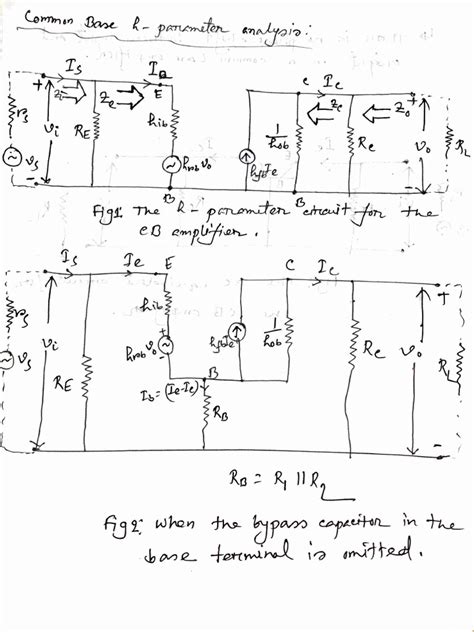 Common Base h-parameter analysis:
Is
IQ
E
+
Zi
Ze
rs
vi
RE
hib
vs
hrb vo
-
B
c
Ic
Zc
Zo
+
1/hob
hfb Ie
Rc
vo
RL
B
-
Fig1: The h-parameter circuit for the
CB amplifier.
Is
Ie
E
C
Ic
+
rs
vi
RE
hib
+
hrb vo
-
hfb Ie
1/hob
Rc
vo
RL
vs
B
Ib = (Ie-Ic)
RB
-
RB = R1 || R2
Fig2: When the bypass capacitor in the
base terminal is omitted.